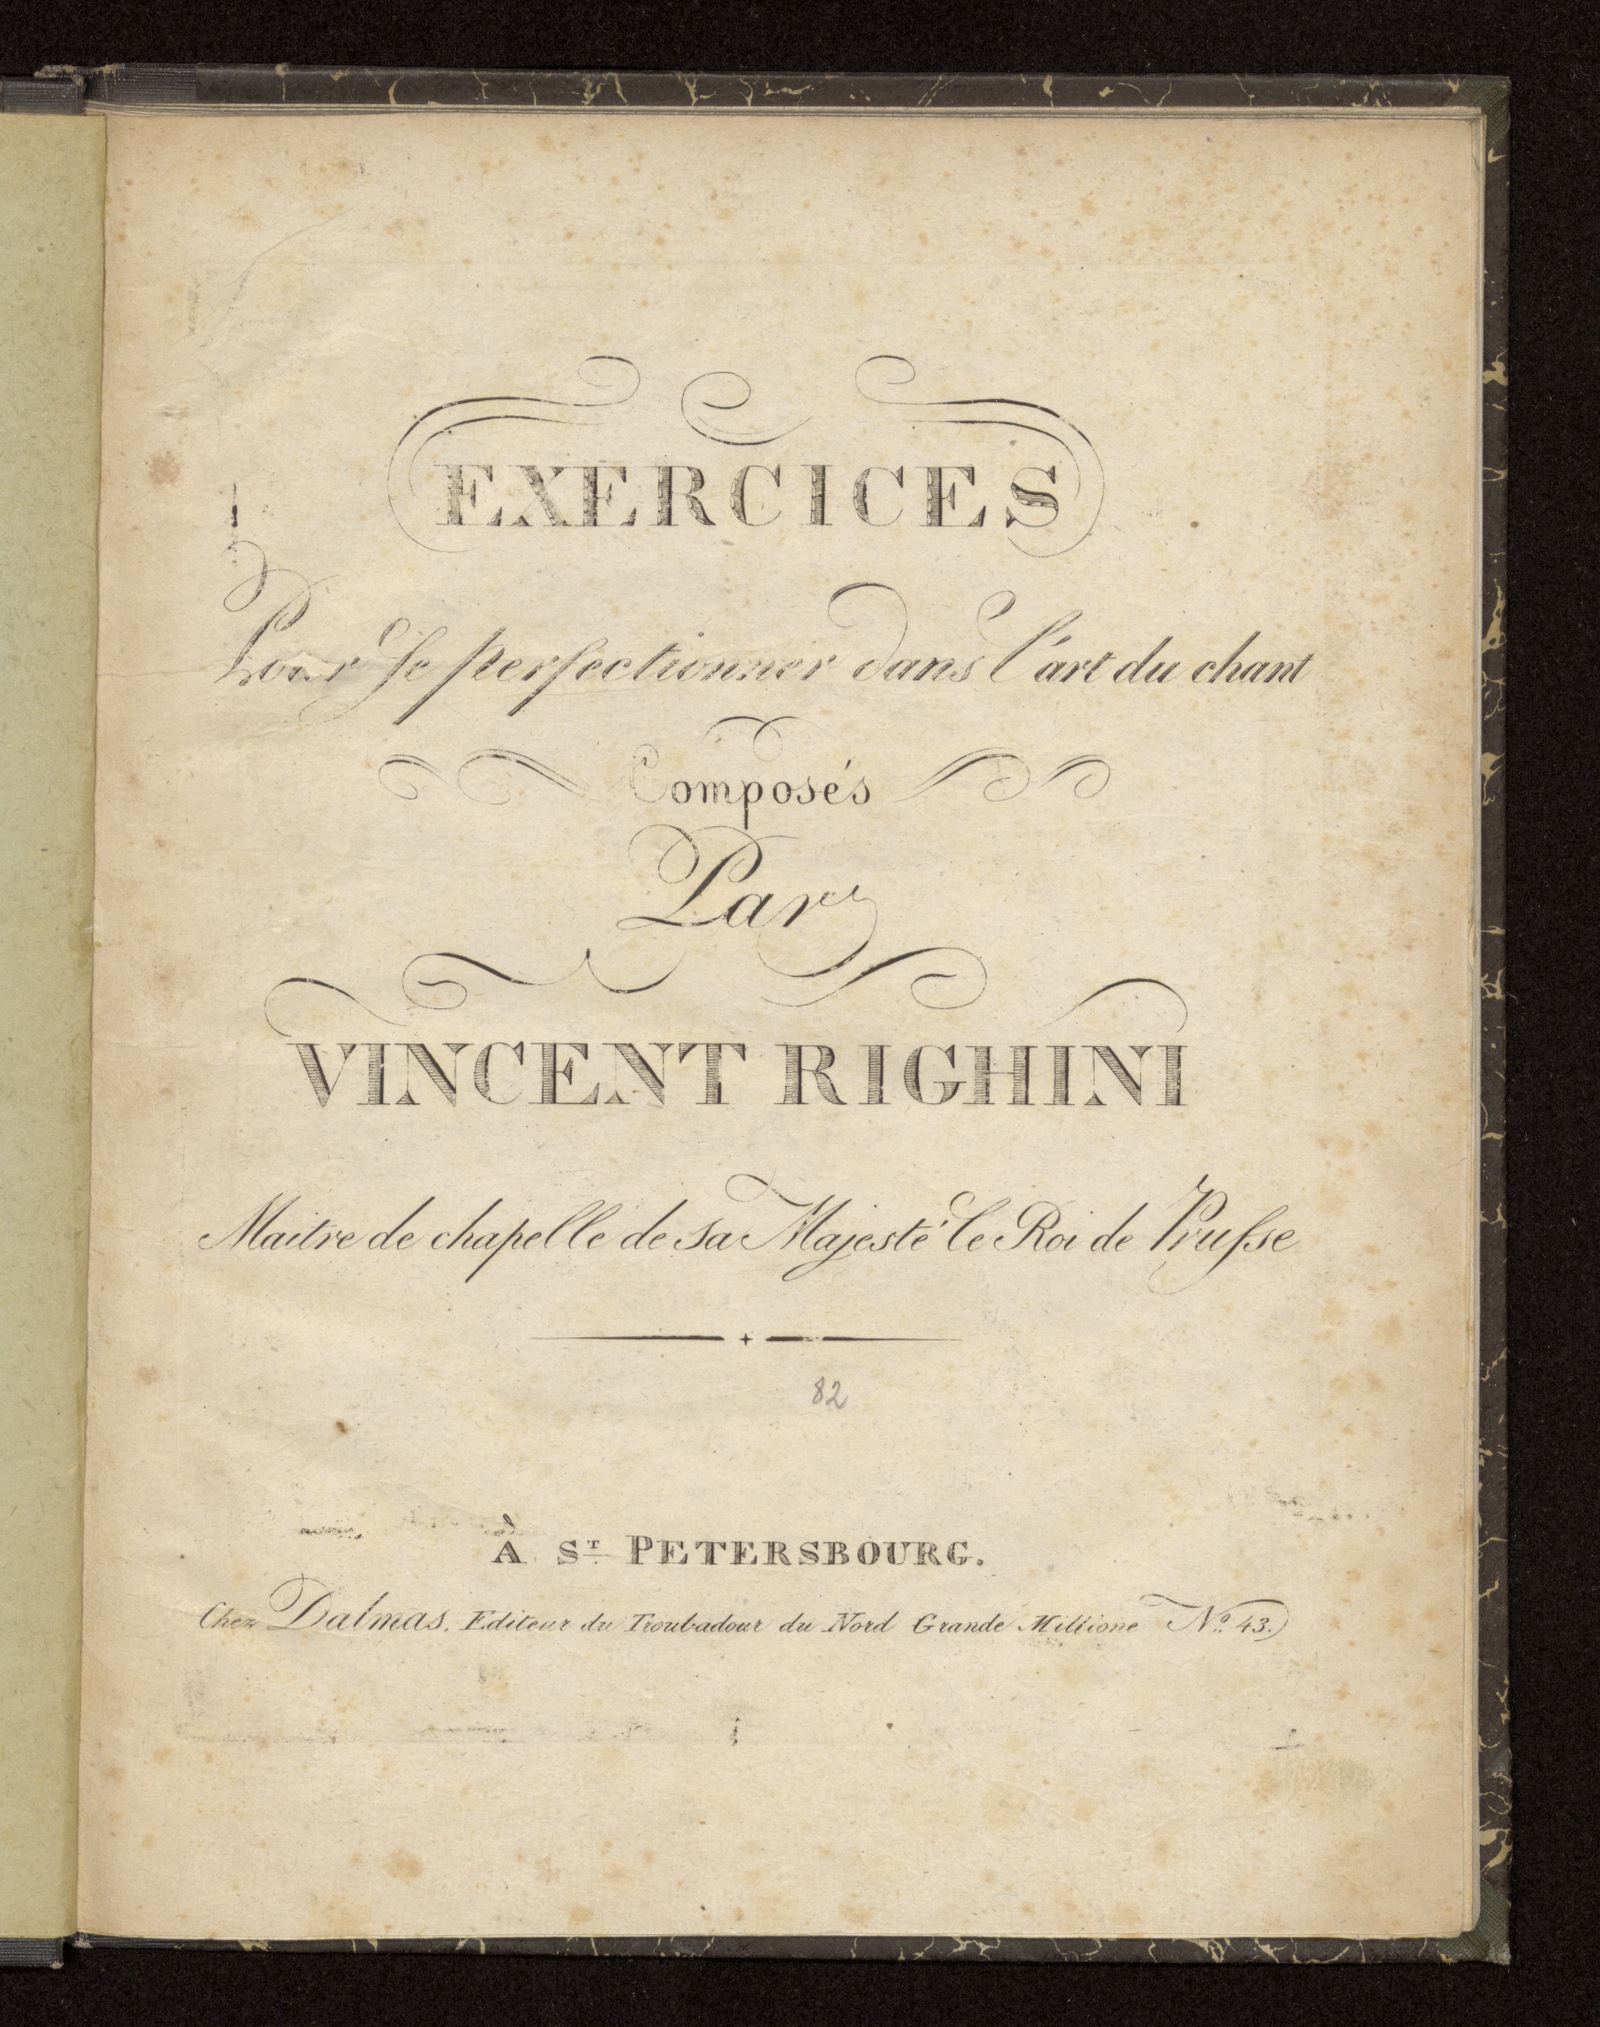 EXERCICES
Pour se perfectionner dans l'art du chant
Composés
Par
VINCENT RIGHINI
Maitre de chapelle de sa Majesté le Roi de Prusse
82
À ST PETERSBOURG.
Chez Dalmas, Editeur du Troubadour du Nord Grande Millione No. 43.